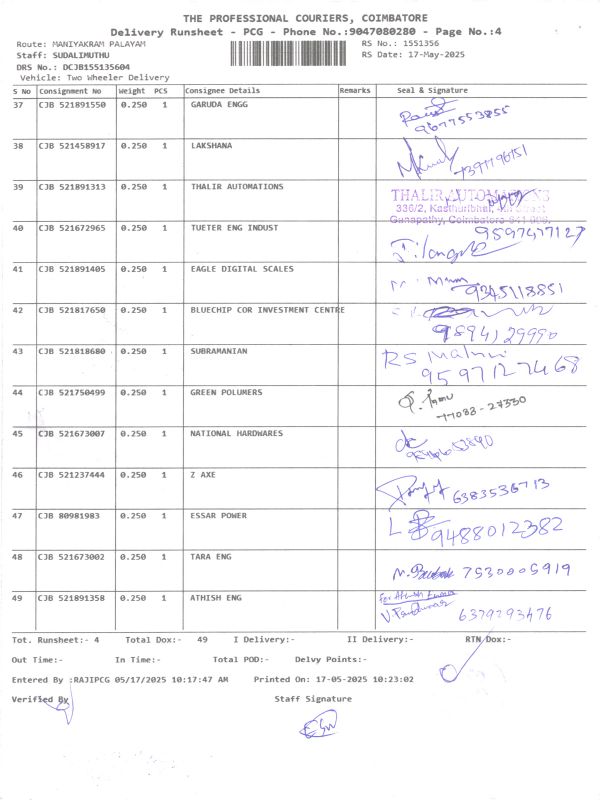 THE PROFESSIONAL COURIERS, COIMBATORE
Delivery Runsheet - PCG - Phone No.:9047080280 - Page No.:4
Route: MANIYAKRAM PALAYAM RS No.: 1551356
Staff: SUDALIMUTHU RS Date: 17-May-2025
DRS No.: DCJB155135604
Vehicle: Two Wheeler Delivery
S No Consignment No Weight PCS Consignee Details Remarks Seal & Signature
37 CJB 521891550 0.250 1 GARUDA ENGG
9677553855
38 CJB 521458917 0.250 1 LAKSHANA
7397196151
39 CJB 521891313 0.250 1 THALIR AUTOMATIONS
THALIR AUTOMATIONS
336/2, Kasthuribhai, 4th Street
Gunapathy, Coimbatore-641 006.
40 CJB 521672965 0.250 1 TUETER ENG INDUST
9597477127
41 CJB 521891405 0.250 1 EAGLE DIGITAL SCALES
9345118851
42 CJB 521817650 0.250 1 BLUECHIP COR INVESTMENT CENTRE
9894129990
43 CJB 521818680 0.250 1 SUBRAMANIAN
RS
9597127468
44 CJB 521750499 0.250 1 GREEN POLUMERS
77088-27330
45 CJB 521673007 0.250 1 NATIONAL HARDWARES
46 CJB 521237444 0.250 1 Z AXE
6383536713
47 CJB 80981983 0.250 1 ESSAR POWER
9488012382
48 CJB 521673002 0.250 1 TARA ENG
7530005919
49 CJB 521891358 0.250 1 ATHISH ENG
For Athish
6379293476
Tot. Runsheet:- 4 Total Dox:- 49 I Delivery:- II Delivery:- RTN Dox:-
Out Time:- In Time:- Total POD:- Delvy Points:-
Entered By :RAJIPCG 05/17/2025 10:17:47 AM Printed On: 17-05-2025 10:23:02
Verified By Staff Signature